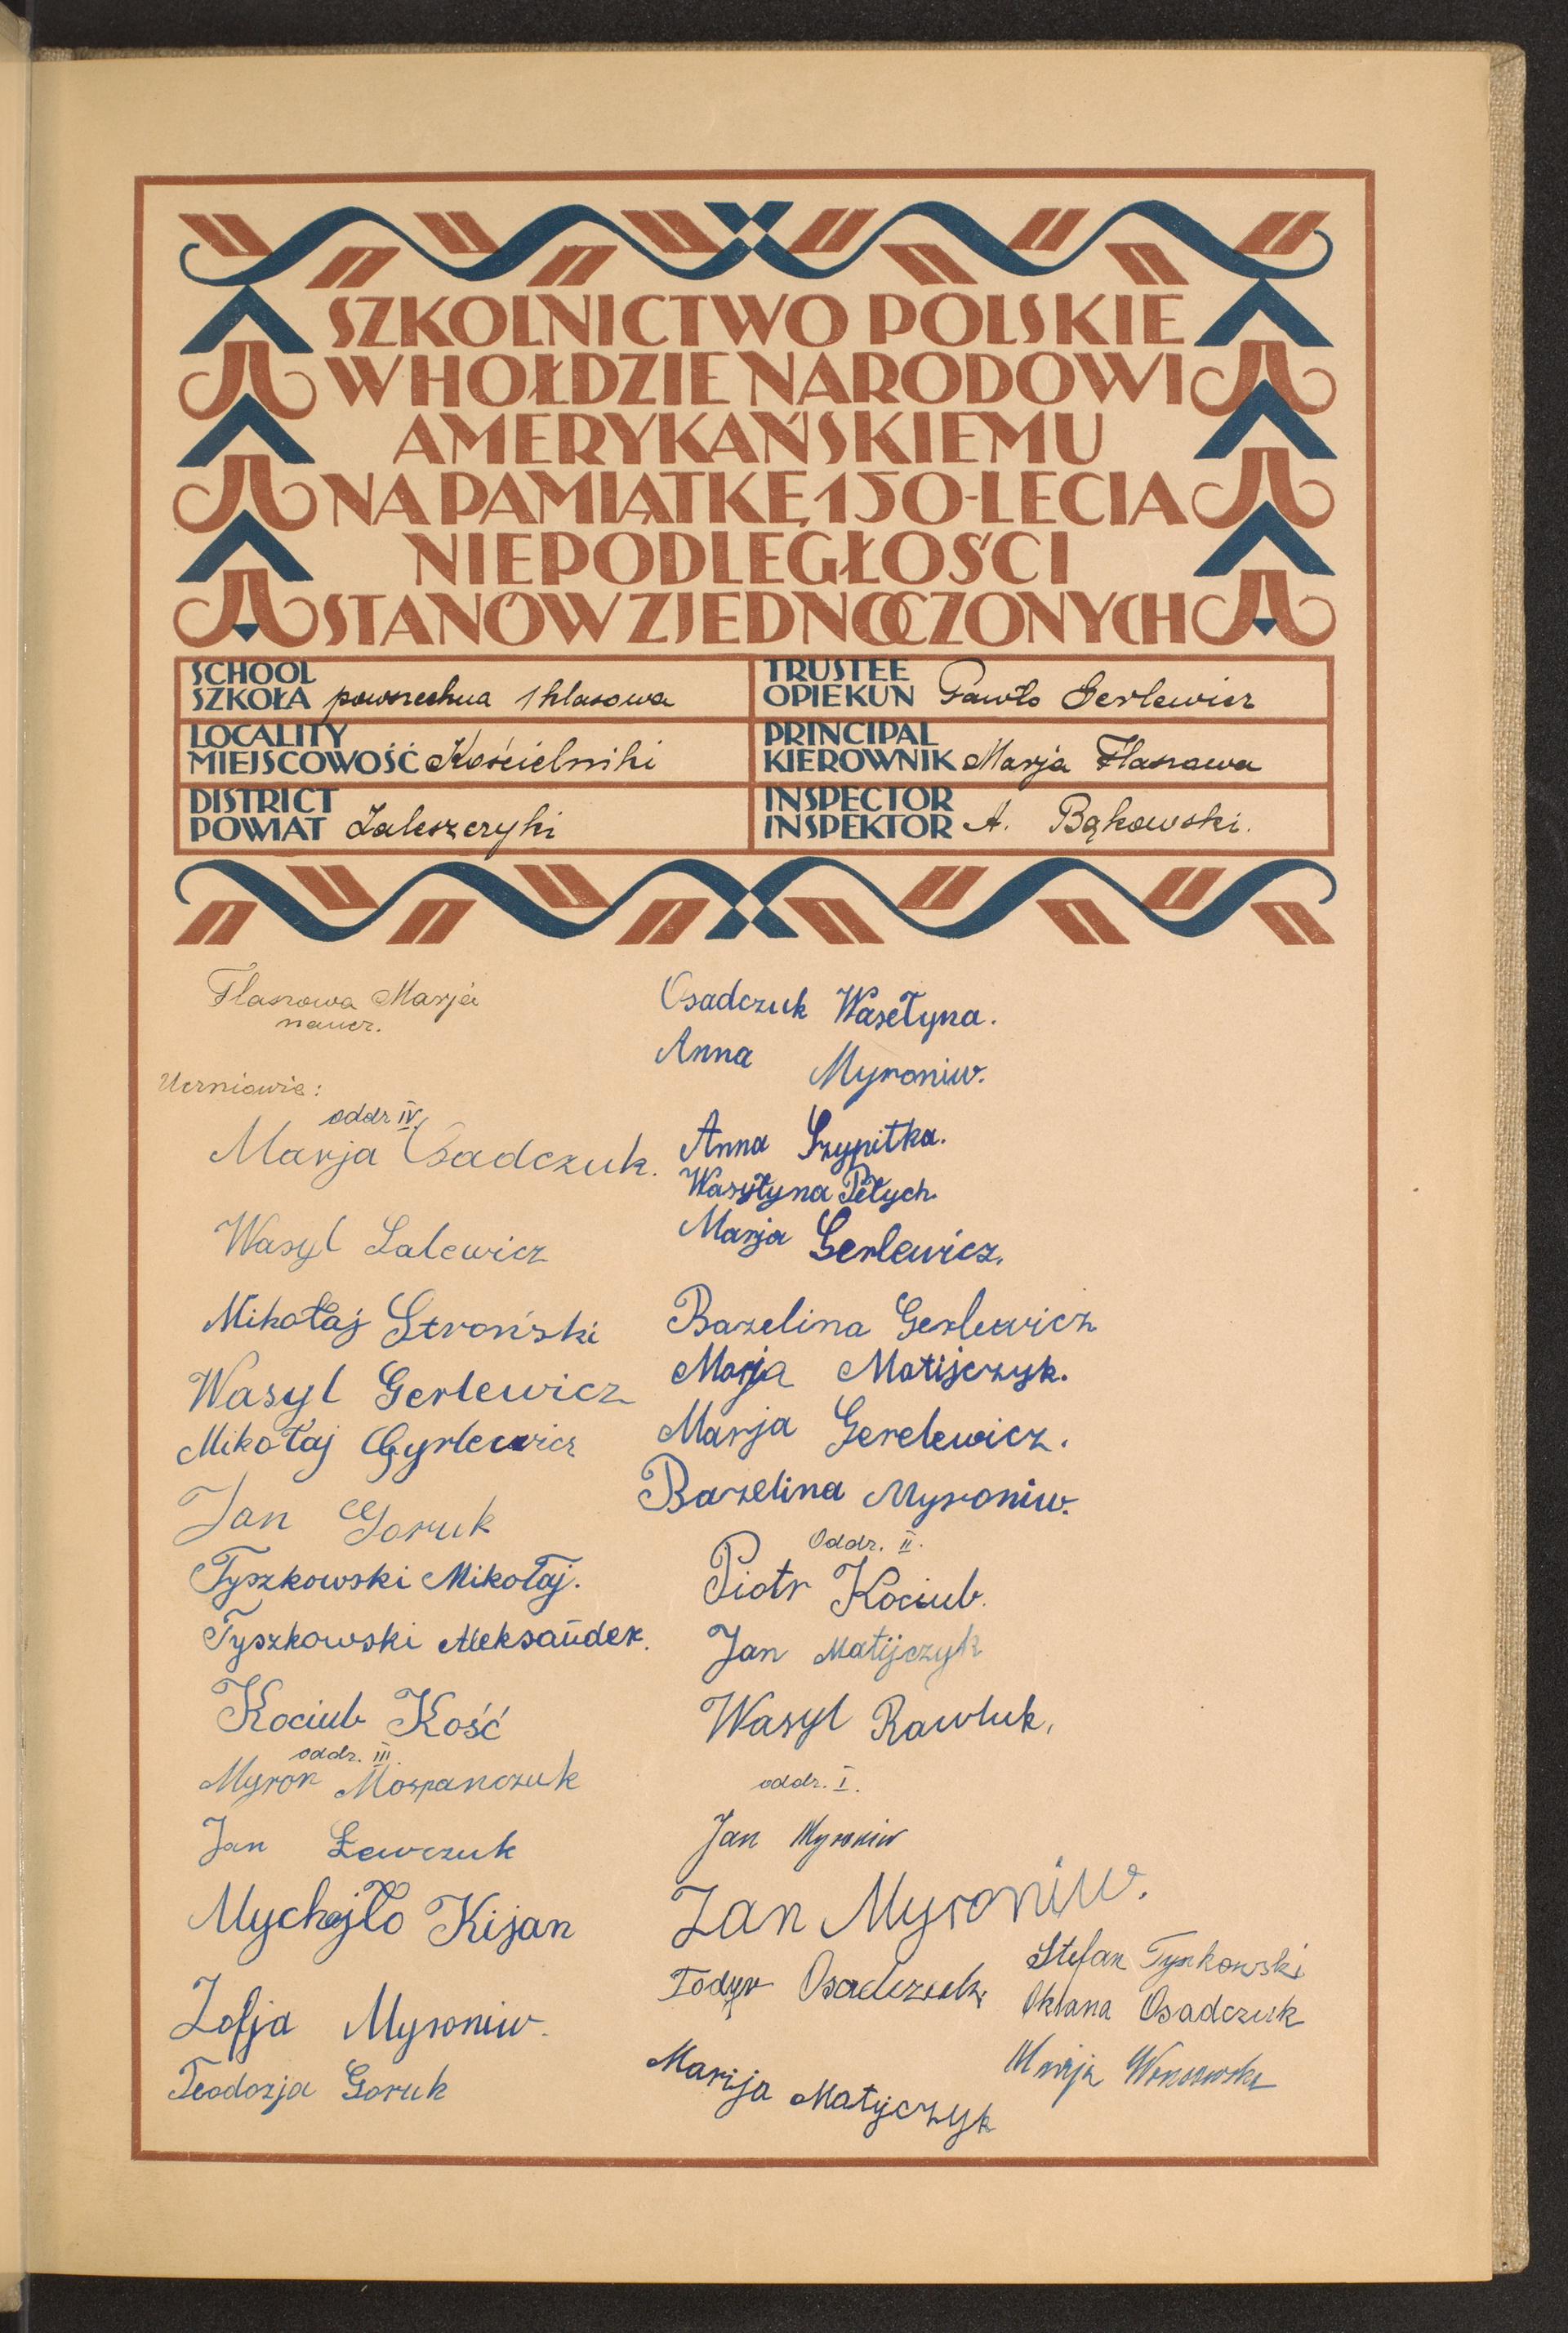 SZKOLNICTWO POLSKIE
W HOŁDZIE NARODOWI
AMERYKAŃSKIEMU
NA PAMIĄTKĘ 150-LECIA
NIEPODLEGŁOŚCI
STANÓW ZJEDNOCZONYCH
SCHOOL
SZKOŁA powszechna 1 klasowa
LOCALITY
MIEJSCOWOŚĆ Kościelniki
DISTRICT
POWIAT Zaleszczyki
TRUSTEE
OPIEKUN Pawło Gerlewicz
PRINCIPAL
KIEROWNIK Marja Flaszowa
INSPECTOR
INSPEKTOR A. Bąkowski.
Flaszowa Marja
naucz.
Uczniowie:
oddz IV.
Marja Osadczuk.
Wasyl Lalewicz
Mikołaj Stroński
Wasyl Gerlewicz
Mikołaj Gyrlewicz
Jan Goruk
Tyszkowski Mikołaj.
Tyszkowski Aleksander.
Kociub Kość
oddz. III.
Myron Mospanczuk
Jan Lewczuk
Mychajło Kijan
Zofja Myroniw.
Teodozja Goruk
Osadczuk Wasełyna.
Anna Myroniw.
Anna Szypitka.
Wasyłyna Pełych.
Marja Gerlewicz.
Bazelina Gerlewicz
Marja Matijczyk.
Marja Gerelewicz.
Bazelina Myroniw.
Oddz. II.
Piotr Kociub.
Jan Matijczyk
Wasyl Rawluk,
oddz. I.
Jan Myroniw
Jan Myroniw.
Todyr Osadczuk
Marija Matyjczyk
Stefan Tyszkowski
Oktana Osadczuk
Marija